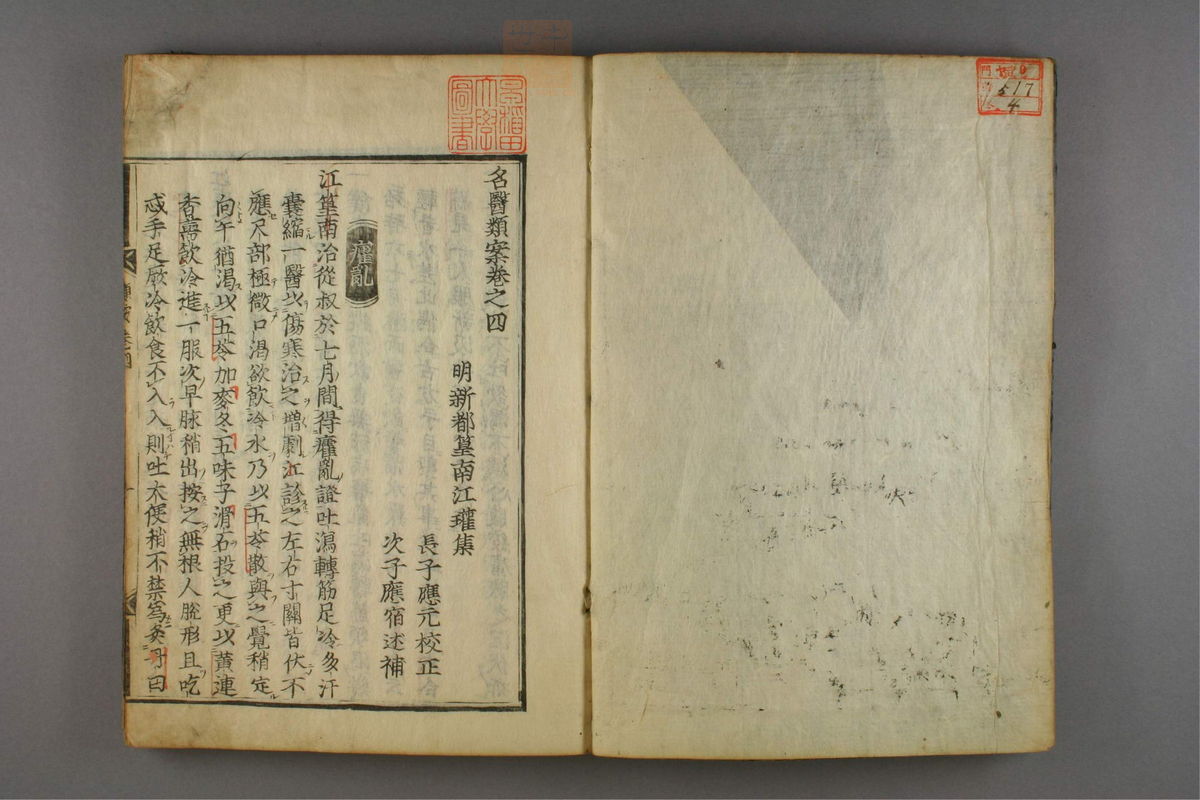 名醫類案卷之四
明新都篁南江瓘集
長子應元校正
次子應宿述補
霍亂
江篁南治從叔於七月間得霍亂證吐瀉轉筋足冷多汗
囊縮一醫以傷寒治之增劇江診之左右寸關皆伏不
應尺部極微口渴欲飲冷水乃以五苓散與之覺稍定
向午猶渴以五苓加麥冬五味子滑石投之更以黃連
香薷飲冷進一服次早脉稍出按之無根人脫形且吃
忒手足厥冷飲食不入入則吐大便稍不禁爲灸丹田
早稻田大學圖書
517
4